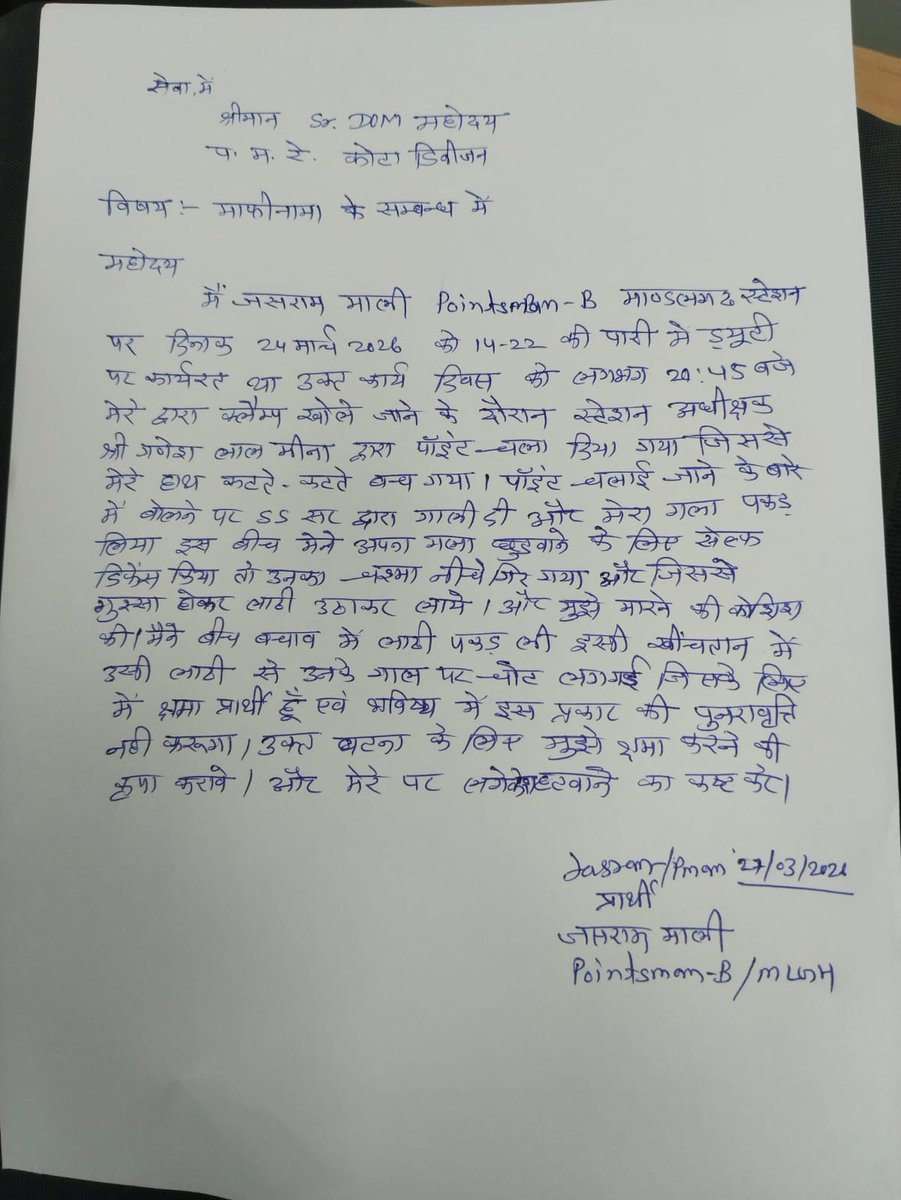 सेवा में
श्रीमान Sr. DOM महोदय
प. म. रे. कोटा डिवीजन
विषय :- माफीनामा के सम्बन्ध में
महोदय
मैं जसराम माली Pointsman-B माण्डलगढ स्टेशन
पर दिनाक 24 मार्च 2026 को 14-22 की पारी मे ड्यूटी
पर कार्यरत था उक्त कार्य दिवस को लगभग 20:45 बजे
मेरे द्वारा क्लैम्प खोले जाने के दौरान स्टेशन अधीक्षक
श्री गणेश लाल मीना द्वारा पॉइंट चला दिया गया जिससे
मेरे हाथ कटते-कटते बच गया। पॉइंट चलाई जाने के बारे
में बोलने पर SS सर द्वारा गाली दी और मेरा गला पकड़
लिया इस बीच मेने अपना गला छुडवाने के लिए सेल्फ
डिफेंस किया तो उनका चश्मा नीचे गिर गया और जिससे
गुस्सा होकर लाठी उठाकर लाये। और मुझे मारने की कोशिश
की। मैने बीच बचाव में लाठी पकड़ ली इसी खींचतान में
उसी लाठी से उनके गाल पर चोट लग गई जिसके लिए
में क्षमा प्रार्थी हूँ एवं भविष्य में इस प्रकार की पुनरावृत्ति
नही करूगा। उक्त घटना के लिए मुझे क्षमा करने की
कृपा करावे। और मेरे पर लगे हटवाने का कष्ट करे।
Jasram/Pman 27/03/2026
प्रार्थी
जसराम माली
Pointsman-B/MLGH